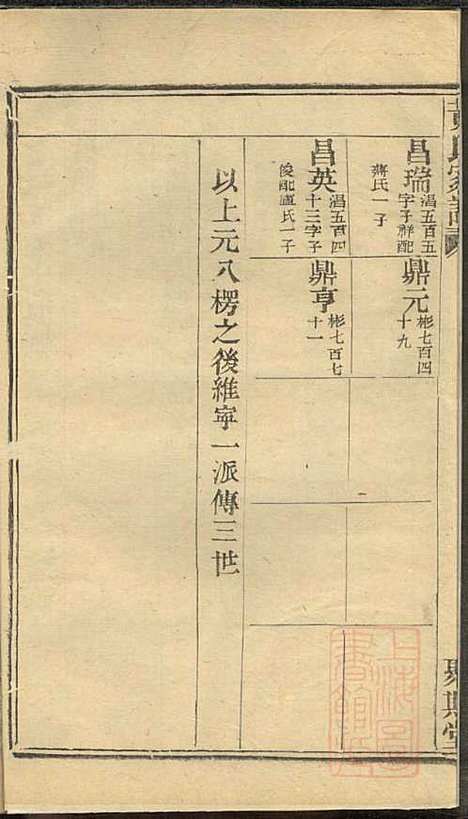 黃氏宗譜
昌瑞 淐五百五
字子祥配
蔣氏一子
鼎元 彬七百四
十九
昌英 淐五百四
十三字子
俊配盧氏一子
鼎亨 彬七百七
十一
以上元八楞之後維寧一派傳三世
聚斯堂
上海圖書館藏